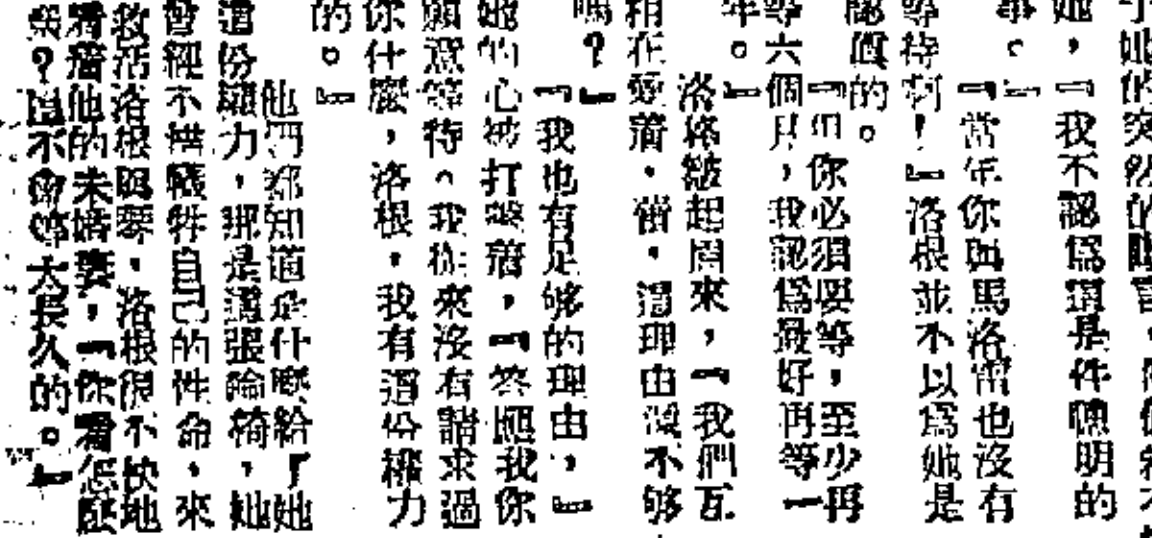 她的突然的
她,『我不認爲這是件聰明的
事。』
『當年你與馬洛雷也沒有
等待啊!』洛根並不以爲她是
認真的。
『但你必須要等,至少再
等六個月,我認爲最好再等一
年。』
洛根皺起眉來,『我們互
相在愛着,蕾,這理由還不够
嗎?』
『我也有足够的理由,』
她的心被打擊着,『答應我你
願意等待。我從來沒有請求過
你什麼,洛根,我有這份權力
的。』
他們都知道是什麼給了她
這份權力,那是這張輪椅,她
曾經不惜犧牲自己的性命,來
救活洛根與琴,洛根很不快地
看着他的未婚妻,『你看怎麼
樣?這不會等太長久的。』